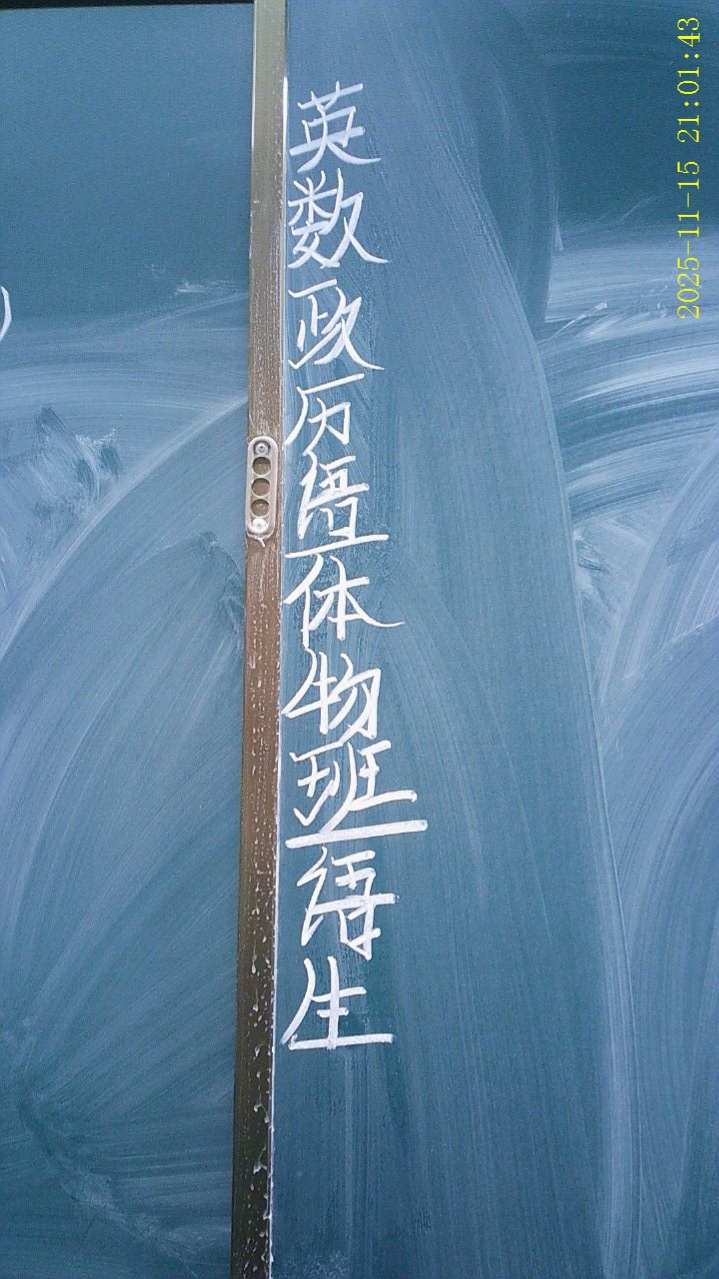 英
数
政
历
语
体
物
班
语
生
2025-11-15 21:01:43